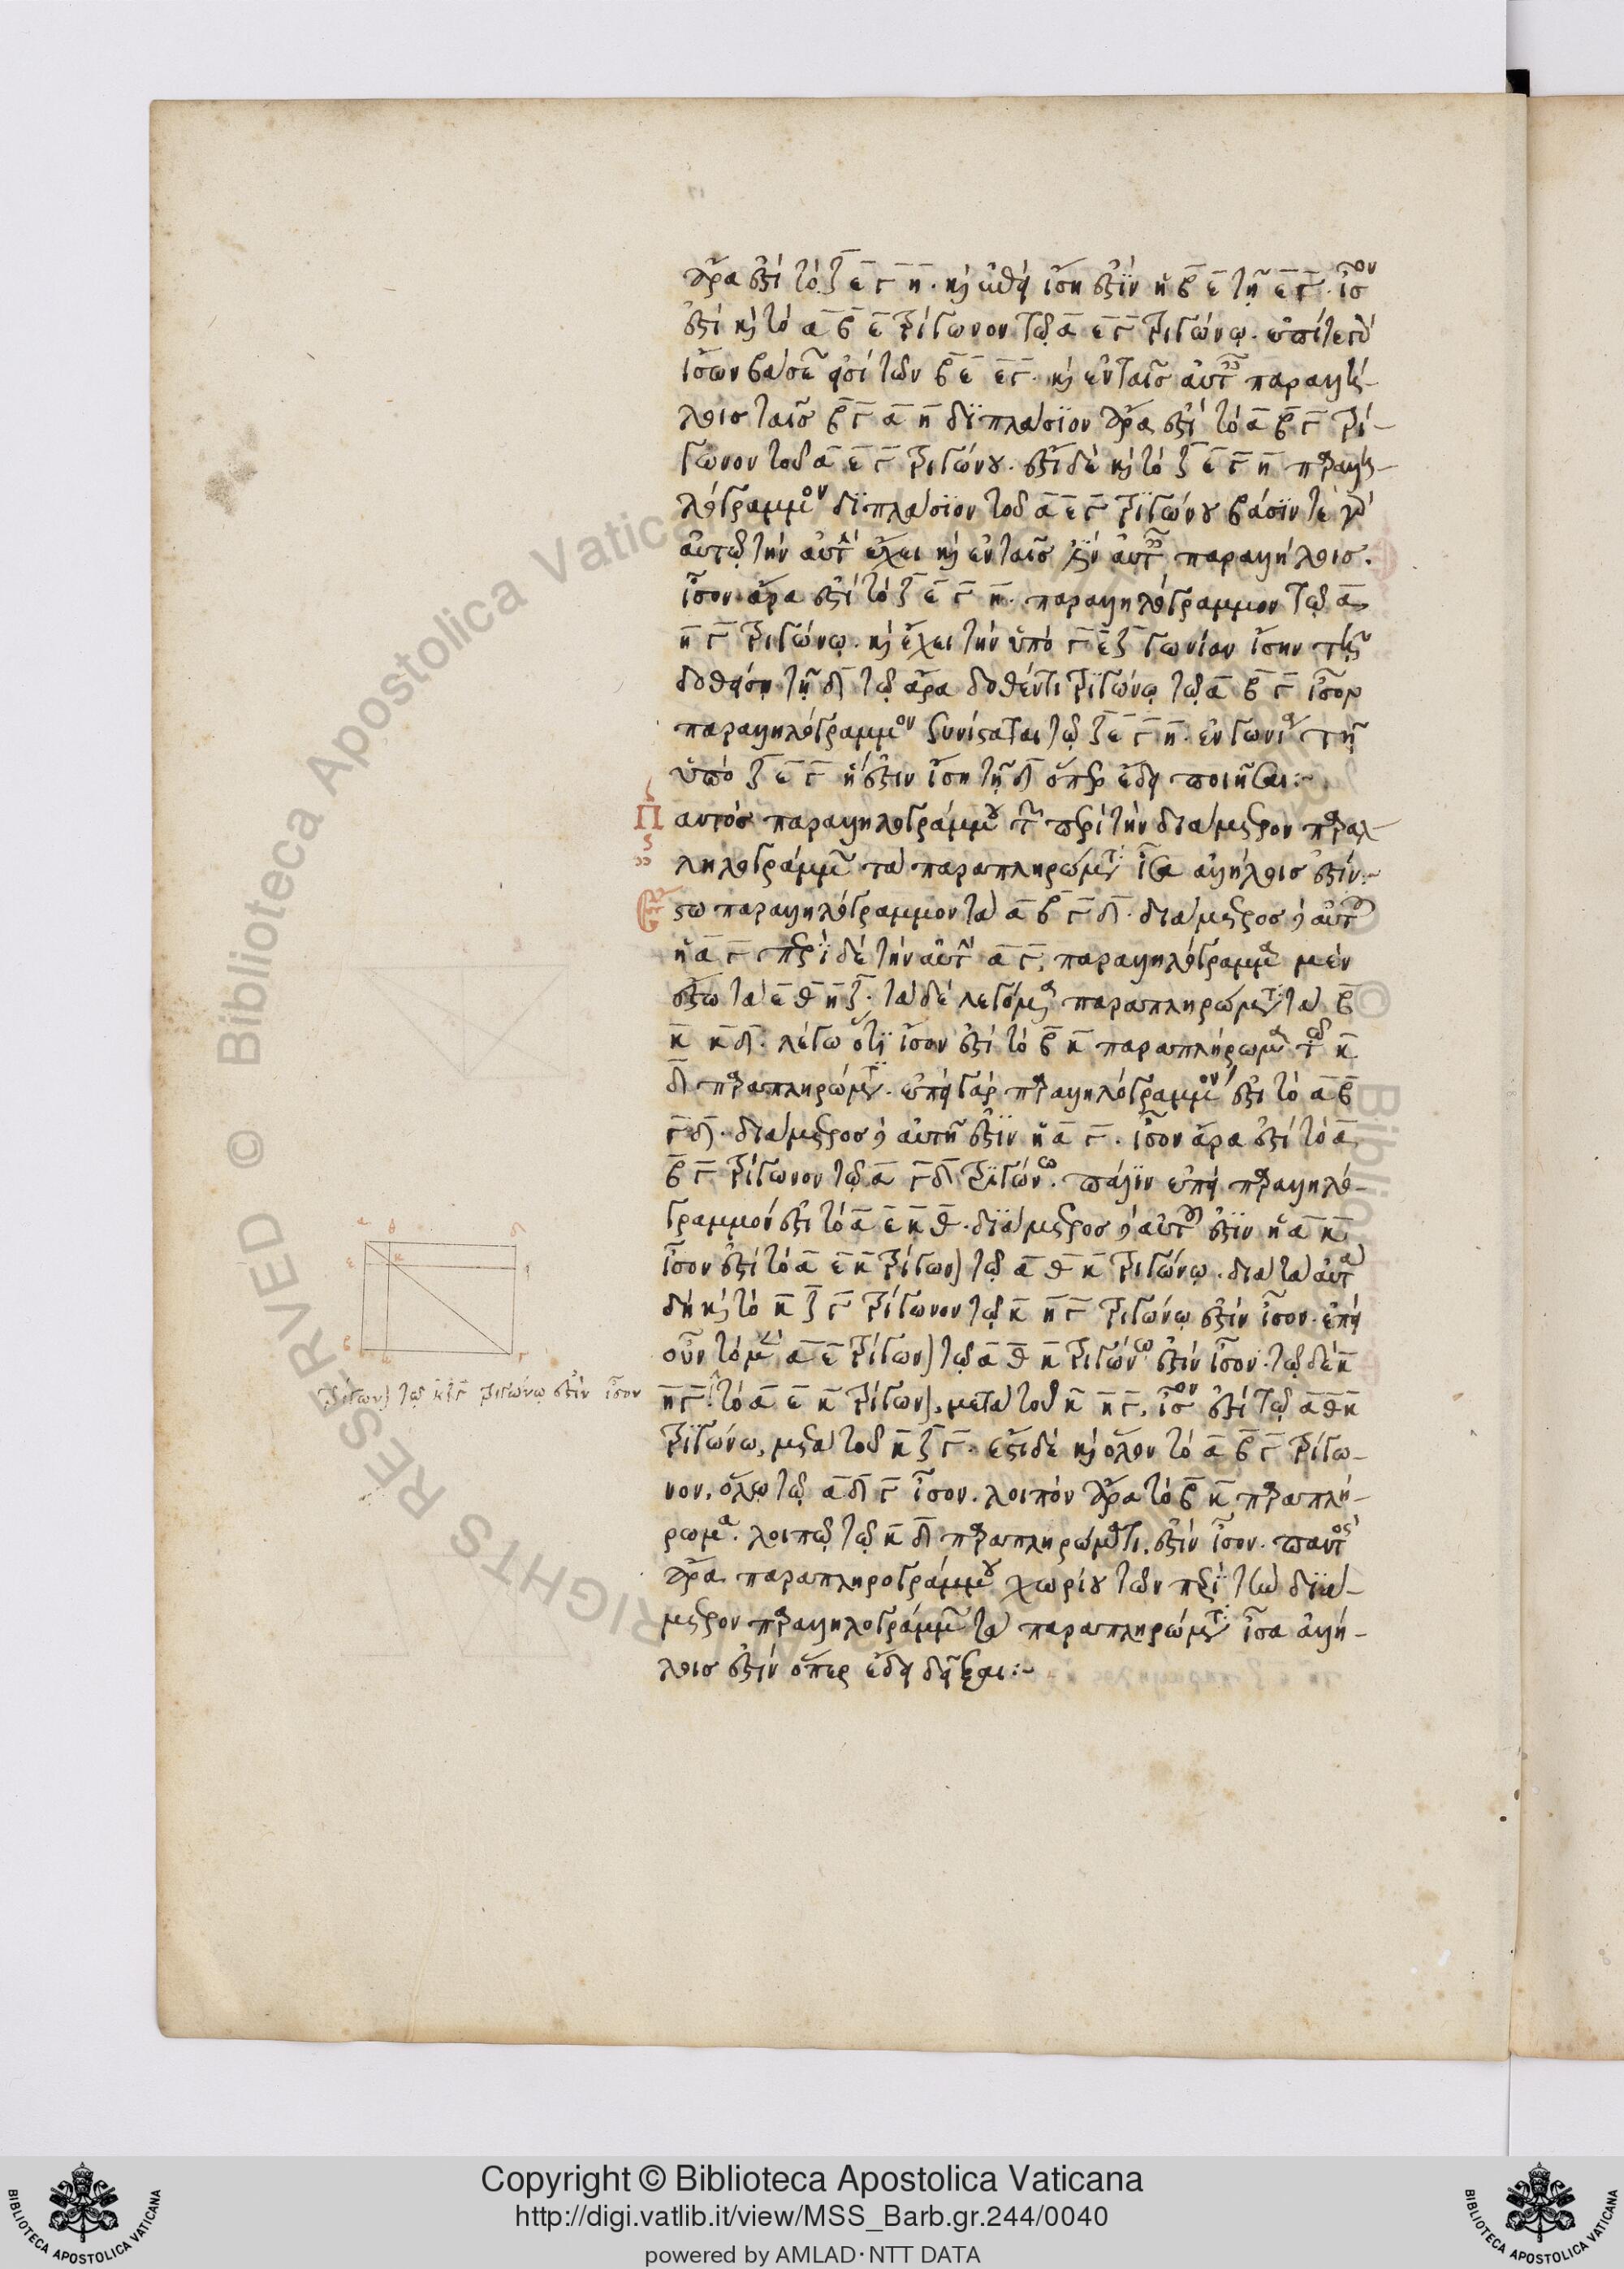 ἄρα ἐστὶ τὸ ζ ε γ η. καὶ ἐπεὶ ἴση ἐστὶν ἡ β ε τῇ ε γ. ἴσον
ἐστὶ καὶ τὸ α β ε τρίγωνον τῷ α ε γ τριγώνῳ. ἐπί τε γὰρ
ἴσων βάσεών εἰσι τῶν β ε ε γ. καὶ ἐν ταῖς αὐταῖς παραλλή-
λοις ταῖς β γ α η διπλάσιον ἄρα ἐστὶ τὸ α β γ τρί-
γωνον τοῦ α ε γ τριγώνου. ἔστι δὲ καὶ τὸ ζ ε γ η παραλλη-
λόγραμμον διπλάσιον τοῦ α ε γ τριγώνου βάσιν τε γὰρ
αὐτῷ τὴν αὐτὴν ἔχει καὶ ἐν ταῖς ἐστὶν αὐταῖς παραλλήλοις.
ἴσον ἄρα ἐστὶ τὸ ζ ε γ η. παραλληλόγραμμον τῷ α
η γ τριγώνῳ. καὶ ἔχει τὴν ὑπὸ γ ε ζ γωνίαν ἴσην τῇ
δοθείσῃ τῇ δ τῷ ἄρα δοθέντι τριγώνῳ τῷ α β γ ἴσον
παραλληλόγραμμον συνίσταται τῷ ζ ε γ η. ἐν γωνίᾳ τῇ
ὑπὸ ζ ε γ ἥ ἐστιν ἴση τῇ δ ὅπερ ἔδει ποιῆσαι:~
Παντὸς παραλληλογράμμου τῶν περὶ τὴν διάμετρον παραλ-
ληλογράμμων τὰ παραπληρώματα ἴσα ἀλλήλοις ἐστίν:~
Ἔστω παραλληλόγραμμον τὰ α β γ δ. διάμετρος δ' αὐτοῦ
ἡ α γ περὶ δὲ τὴν αὐτὴν α γ, παραλληλόγραμμα μὲν
ἔστω τὰ ε θ η ζ. τὰ δὲ λεγόμενα παραπληρώματα τὰ β
κ κ δ. λέγω ὅτι ἴσον ἐστὶ τὸ β κ παραπλήρωμα τῷ κ
δ παραπληρώματι. ἐπεὶ γὰρ παραλληλόγραμμόν ἐστι τὸ α β
γ δ. διάμετρος δ' αὐτῆ ἐστιν ἡ α γ. ἴσον ἄρα ἐστὶ τὸ α
β γ τρίγωνον τῷ α γ δ τριγώνω. πάλιν ἐπεὶ παραλληλό-
γραμμόν ἐστι τὸ α ε κ θ. διάμετρος δ' αὐτοῦ ἐστιν ἡ α κ
ἴσον ἐστὶ τὸ α ε κ τρίγωνον τῷ α θ κ τριγώνῳ. διὰ τὰ αὐτὰ
δὴ καὶ τὸ κ ζ γ τρίγωνον τῷ κ η γ τριγώνῳ ἐστὶν ἴσον. ἐπεὶ
οὖν τὸ μὲν α ε τρίγωνον τῷ α θ κ τριγώνω ἐστὶν ἴσον. τῷ δὲ κ
η γ. τὸ α ε κ τρίγωνον, μετὰ τοῦ κ η γ, ἴσον ἐστὶ τῷ α θ κ
τριγώνω, μετὰ τοῦ κ ζ γ. ἔστι δὲ καὶ ὅλον τὸ α β γ τρίγω-
νον, ὅλῳ τῷ α δ γ ἴσον. λοιπὸν ἄρα τὸ β κ παραπλή-
ρωμα. λοιπῷ τῷ κ δ παραπληρώματι, ἐστὶν ἴσον. παντὸς
ἄρα παραπληρογράμμου χωρίου τῶν περὶ τὴν διά-
μετρον παραλληλογράμμων τὰ παραπληρώματα ἴσα ἀλλή-
λοις ἐστὶν ὅπερ ἔδει δεῖξαι:~
τρίγωνον τῷ κ ζ γ τριγώνῳ ἐστὶν ἴσον
α θ δ
ε κ
β γ
© Biblioteca Apostolica Vaticana
RIGHTS RESERVED
Copyright © Biblioteca Apostolica Vaticana
http://digi.vatlib.it/view/MSS_Barb.gr.244/0040
powered by AMLAD·NTT DATA
BIBLIOTECA APOSTOLICA VATICANA
BIBLIOTECA APOSTOLICA VATICANA